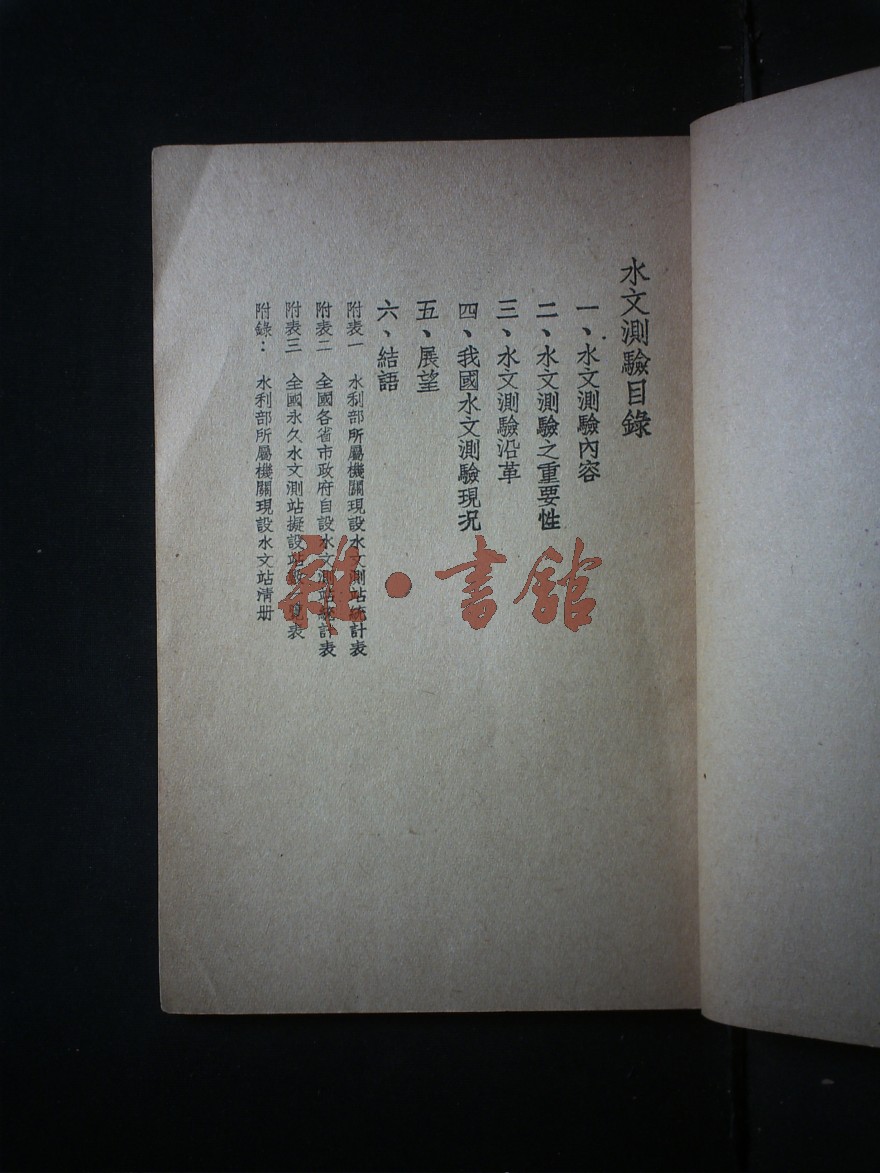 水文測驗目錄
一、水文測驗內容
二、水文測驗之重要性
三、水文測驗沿革
四、我國水文測驗現況
五、展望
六、結語
附表一 水利部所屬機關現設水文測站統計表
附表二 全國各省市政府自設水文測站統計表
附表三 全國永久水文測站擬設站數一覽表
附錄： 水利部所屬機關現設水文站清册
雜·書館